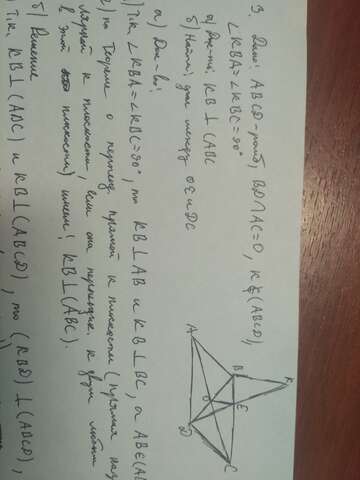 3. Дано: ABCD-ромб, BD∩AC=O, K∉(ABCD),
∠KBA=∠KBC=90°
а) Док-ть: KB⊥(ABC
б) Найти: угол между OE и DC
а) Док-во:
1) т.к. ∠KBA=∠KBC=90°, то KB⊥AB и KB⊥BC, а AB∈(AB
2) по Теореме о перпенд. прямой к плоскости (прямая наз
лярной к плоскости, если она перпендик. к двум любым
в этой плоскости) имеем: KB⊥(ABC).
б) Решение
т.к. KB⊥(ABC) и KB⊥(ABCD), то (KBD)⊥(ABCD),
A
B
K
O
E
D
C